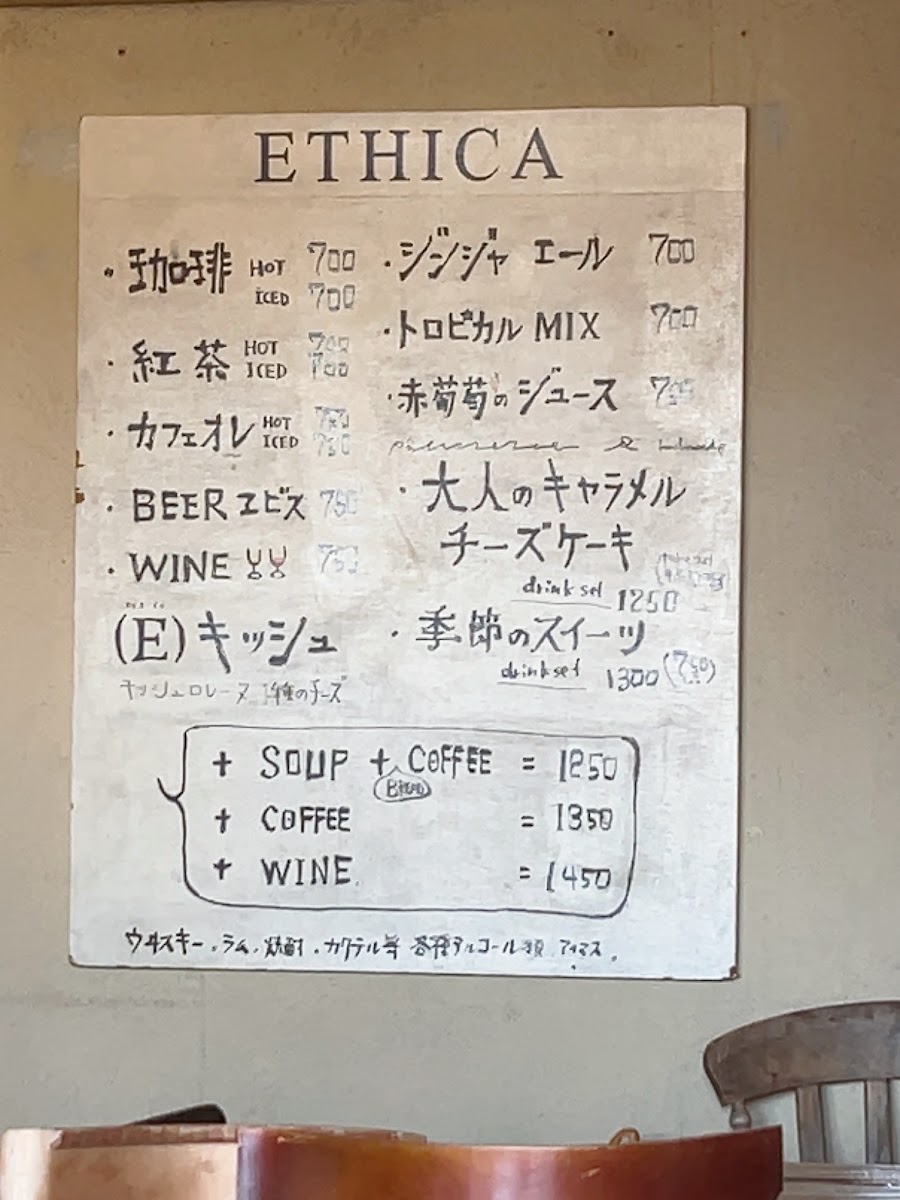 ETHICA
・珈琲 HOT 700
ICED 700
・紅茶 HOT 700
ICED 700
・カフェオレ HOT 750
ICED 750
・BEER ヱビス 750
・WINE 750
(E) キッシュ
キッシュロレーヌ 4種のチーズ
・ジンジャエール 700
・トロピカル MIX 700
・赤葡萄のジュース
・大人のキャラメル
チーズケーキ
drink set 1250
・季節のスイーツ
drink set 1300 (750)
+ SOUP + COFFEE = 1250
+ COFFEE = 1350
+ WINE = 1450
ウヰスキー・ラム・焼酎・カクテル等 各種アルコール類